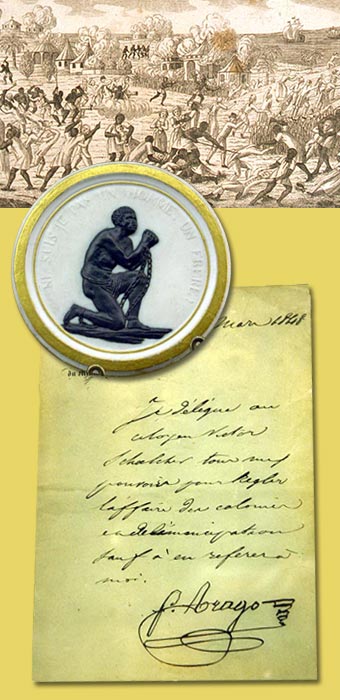 NE SUIS-JE PAS UN HOMME, UN FRERE?
Mars 1848
Je délègue au
citoyen Victor
Schœlcher tous mes
pouvoirs pour Régler
l'affaire des colonies
et de l'émancipation
sauf à en référer à
moi.
F. Arago